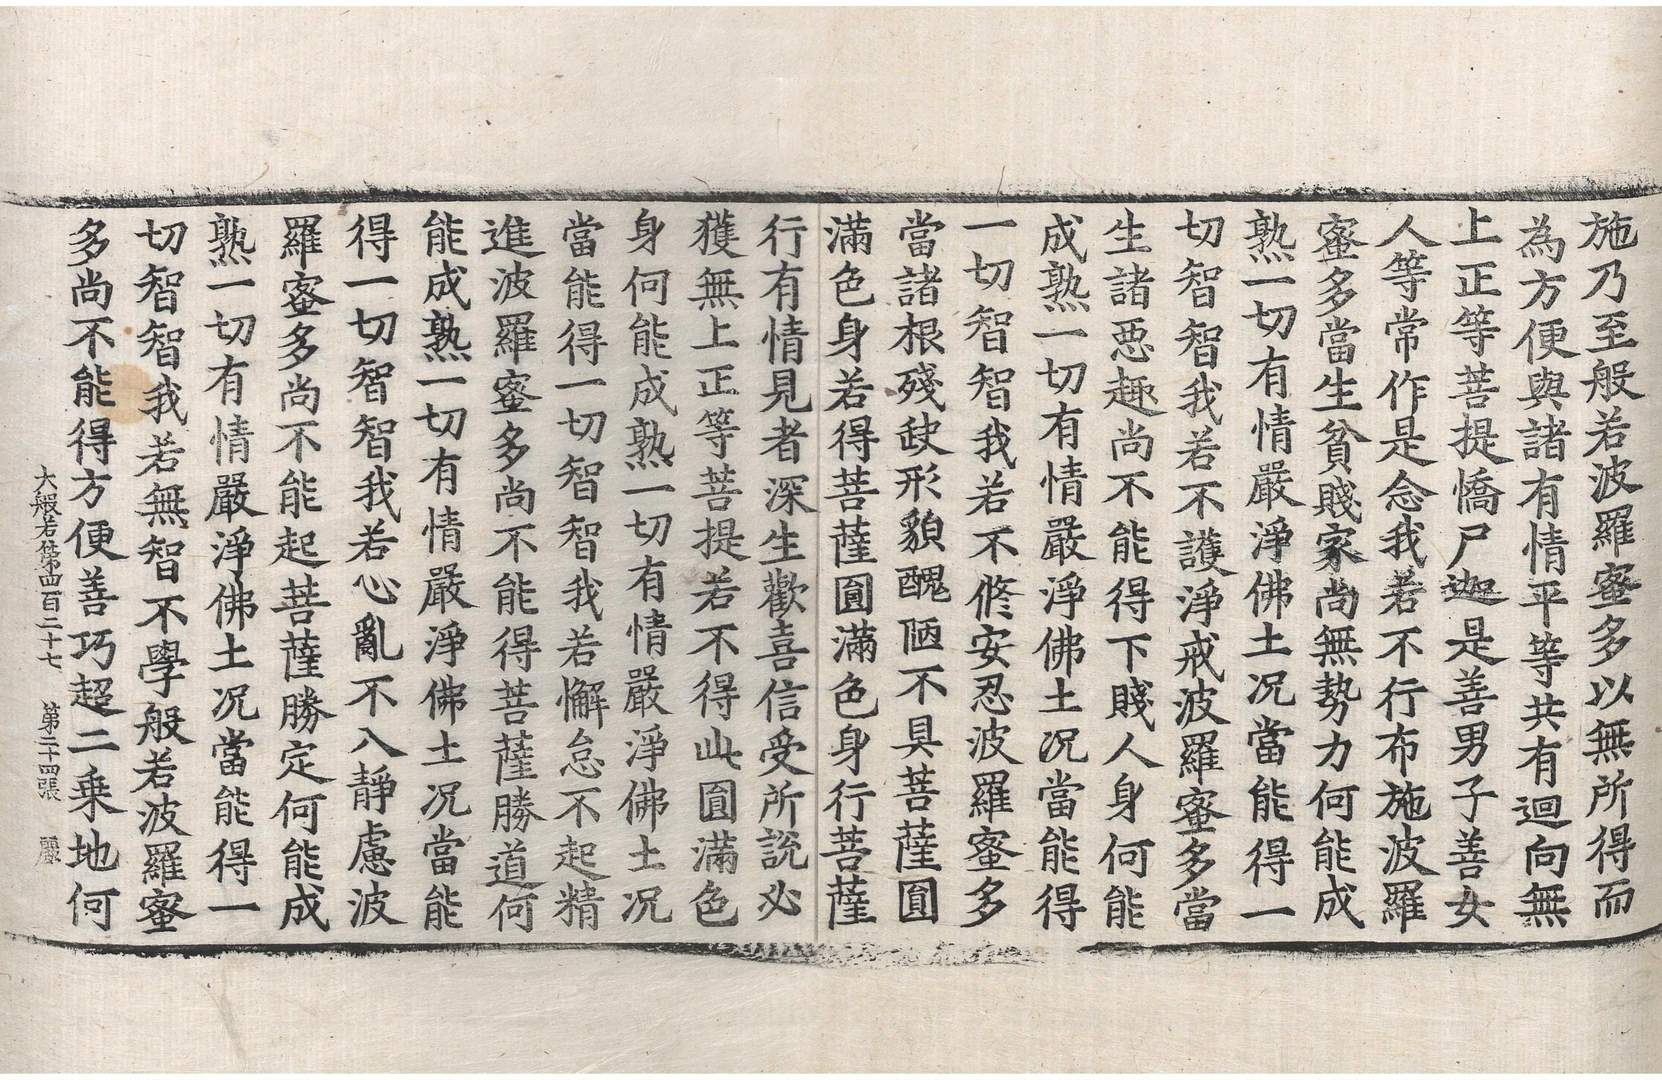 施乃至般若波羅蜜多以無所得而
為方便與諸有情平等共有迴向無
上正等菩提憍尸迦是善男子善女
人等常作是念我若不行布施波羅
蜜多當生貧賤家尚無勢力何能成
熟一切有情嚴淨佛土況當能得一
切智智我若不護淨戒波羅蜜多當
生諸惡趣尚不能得下賤人身何能
成熟一切有情嚴淨佛土況當能得
一切智智我若不修安忍波羅蜜多
當諸根殘缺形貌醜陋不具菩薩圓
滿色身若得菩薩圓滿色身行菩薩
行有情見者深生歡喜信受所說必
獲無上正等菩提若不得此圓滿色
身何能成熟一切有情嚴淨佛土況
當能得一切智智我若懈怠不起精
進波羅蜜多尚不能得菩薩勝道何
能成熟一切有情嚴淨佛土況當能
得一切智智我若心亂不入靜慮波
羅蜜多尚不能起菩薩勝定何能成
熟一切有情嚴淨佛土況當能得一
切智智我若無智不學般若波羅蜜
多尚不能得方便善巧超二乘地何
大般若第四百二十七 第二十四張 麗